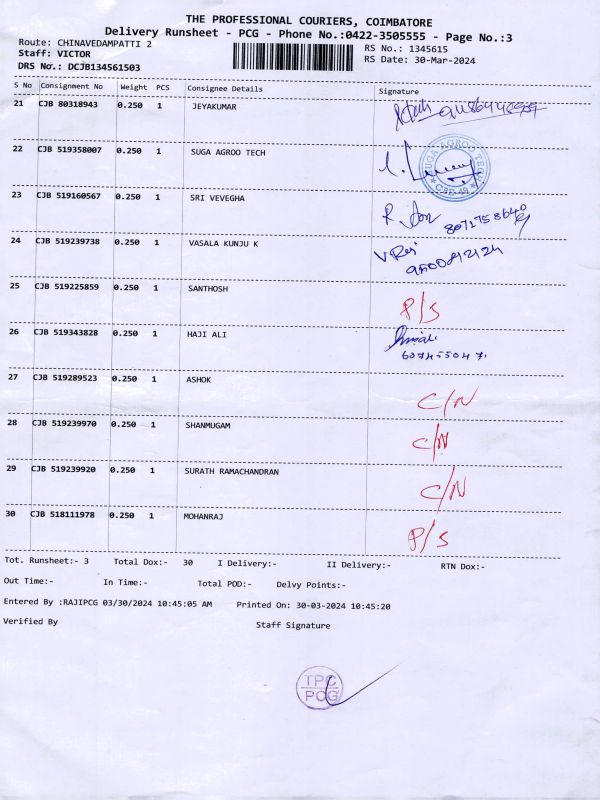 THE PROFESSIONAL COURIERS, COIMBATORE
Delivery Runsheet - PCG - Phone No.:0422-3505555 - Page No.:3
Route: CHINAVEDAMPATTI 2
RS No.: 1345615
Staff: VICTOR
RS Date: 30-Mar-2024
DRS No.: DCJB134561503
S No Consignment No Weight PCS Consignee Details Signature
21 CJB 80318943 0.250 1 JEYAKUMAR
22 CJB 519358007 0.250 1 SUGA AGROO TECH
SUGA AGROO TECH
23 CJB 519160567 0.250 1 SRI VEVEGHA
24 CJB 519239738 0.250 1 VASALA KUNJU K
25 CJB 519225859 0.250 1 SANTHOSH
P/S
26 CJB 519343828 0.250 1 HAJI ALI
27 CJB 519289523 0.250 1 ASHOK
C/N
28 CJB 519239970 0.250 1 SHANMUGAM
C/N
29 CJB 519239920 0.250 1 SURATH RAMACHANDRAN
C/N
30 CJB 518111978 0.250 1 MOHANRAJ
P/S
Tot. Runsheet:- 3 Total Dox:- 30 I Delivery:- II Delivery:- RTN Dox:-
Out Time:- In Time:- Total POD:- Delvy Points:-
Entered By :RAJIPCG 03/30/2024 10:45:05 AM Printed On: 30-03-2024 10:45:20
Verified By Staff Signature
TPC
PCG